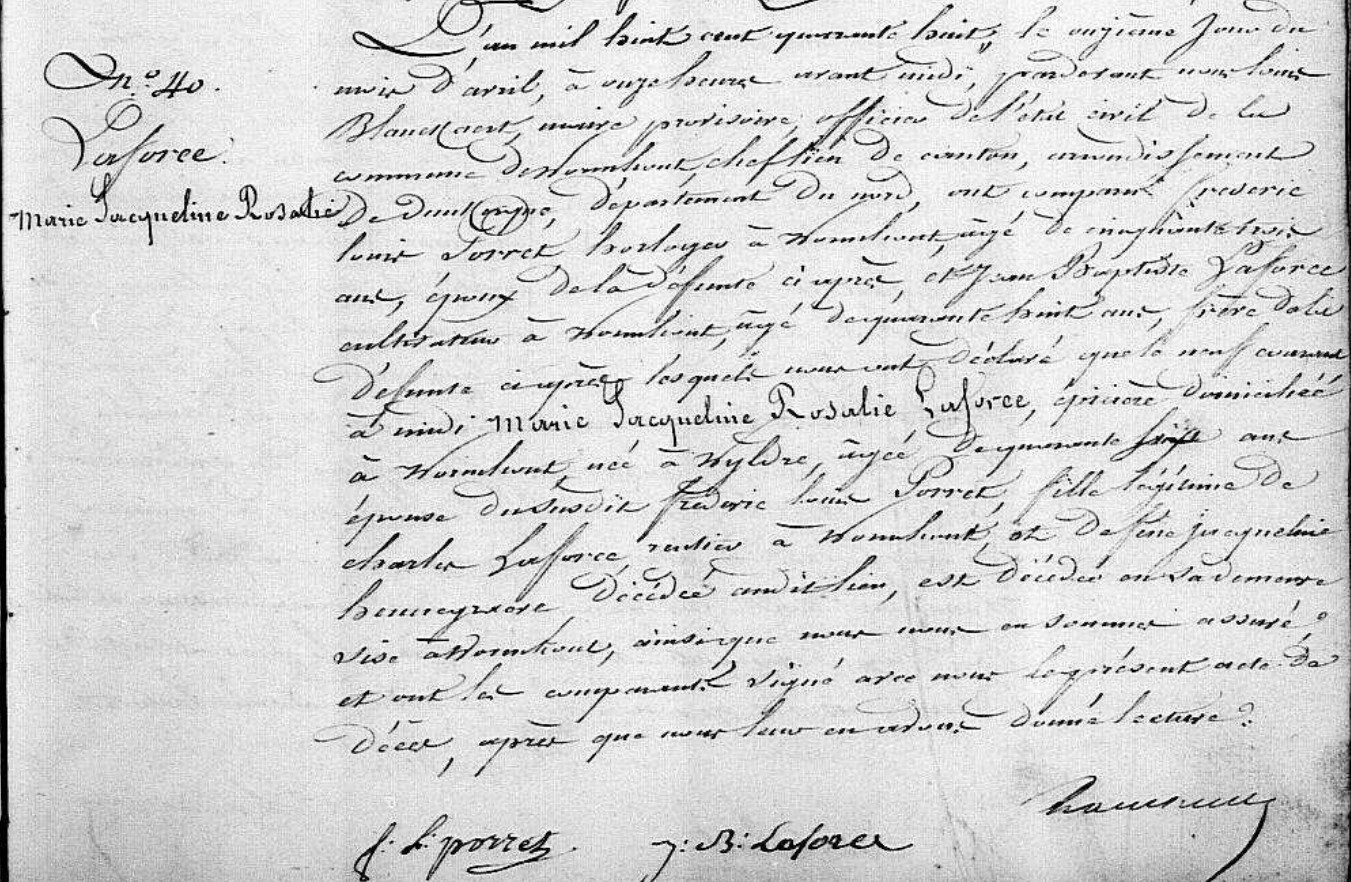 L'an mil huit cent quarante huit, le onzième jour du
n.º 40.
mois d'avril, à onze heures avant midi, pardevant nous louis
Blanckaert, maire provisoire, officier de l'état civil de la
Laforce.
commune de Wormhout, chef lieu de canton, arrondissement
Marie Jacqueline Rosalie
de Dunkerque, département du nord, ont comparu frederic
louis Porret, horloger à Wormhout, âgé de cinquante trois
ans, époux de la défunte ci après, et Jean Baptiste Laforce
cultivateur à Wormhout, âgé de quarante huit ans, frère de la
défunte ci après, lesquels nous ont déclaré que le neuf courant
à midi Marie Jacqueline Rosalie Laforce, épicière domiciliée
à Wormhout, née à Wylder, âgée de quarante sept ans
épouse du susdit frederic louis Porret, fille légitime de
charles Laforce, rentier à Wormhout, et de feue jacqueline
décédée audit lieu, est décédée en sa demeure
sise à Wormhout, ainsi que nous nous en sommes assuré,
et ont les comparants signé avec nous le présent acte de
décès, après que nous leur en avons donné lecture.
f: L: porret. J: B: Laforce